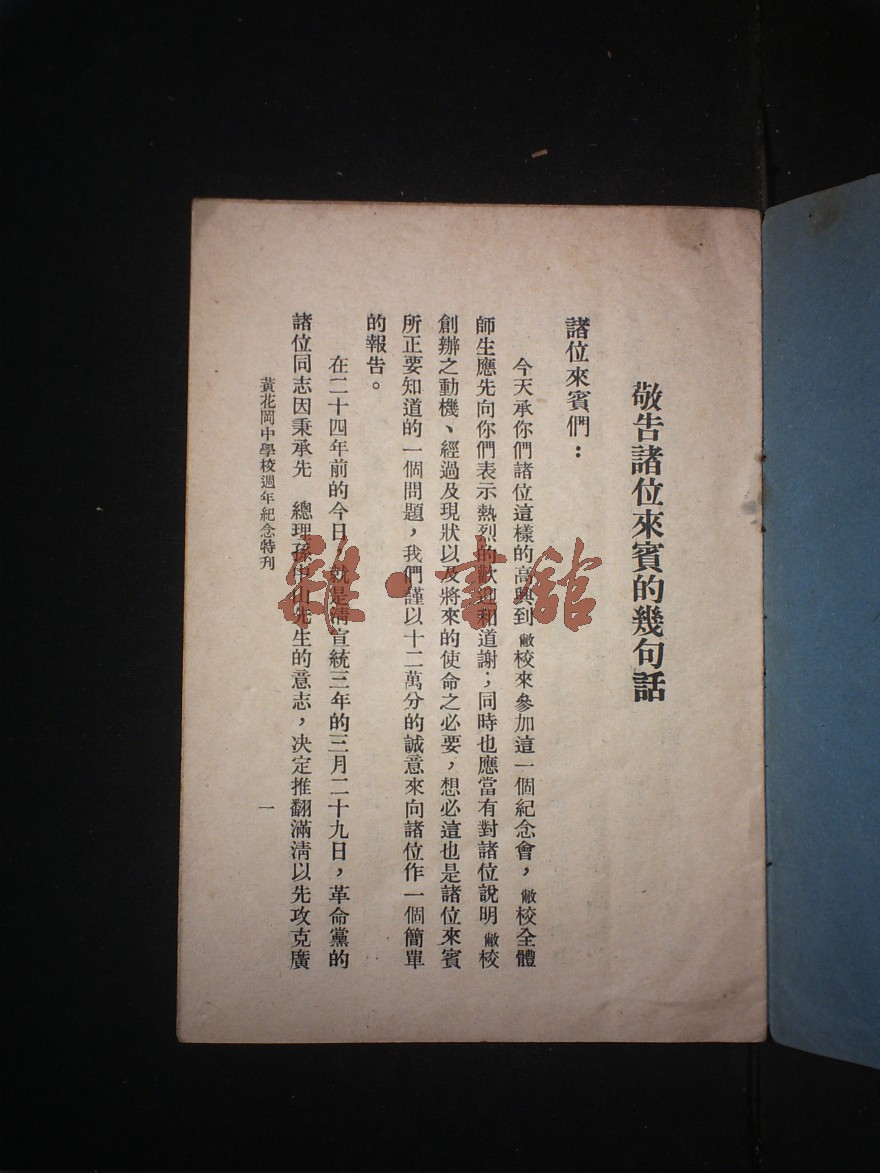 敬告諸位來賓的幾句話
諸位來賓們：
今天承你們諸位這樣的高興到敝校來參加這一個紀念會，敝校全體
師生應先向你們表示熱烈的歡迎和道謝；同時也應當有對諸位說明敝校
創辦之動機、經過及現狀以及將來的使命之必要，想必這也是諸位來賓
所正要知道的一個問題，我們謹以十二萬分的誠意來向諸位作一個簡單
的報告。
在二十四年前的今日，就是淸宣統三年的三月二十九日，革命黨的
諸位同志因秉承先　總理孫中山先生的意志，決定推翻滿淸以先攻克廣
黃花岡中學校週年紀念特刊
一
雜·書館